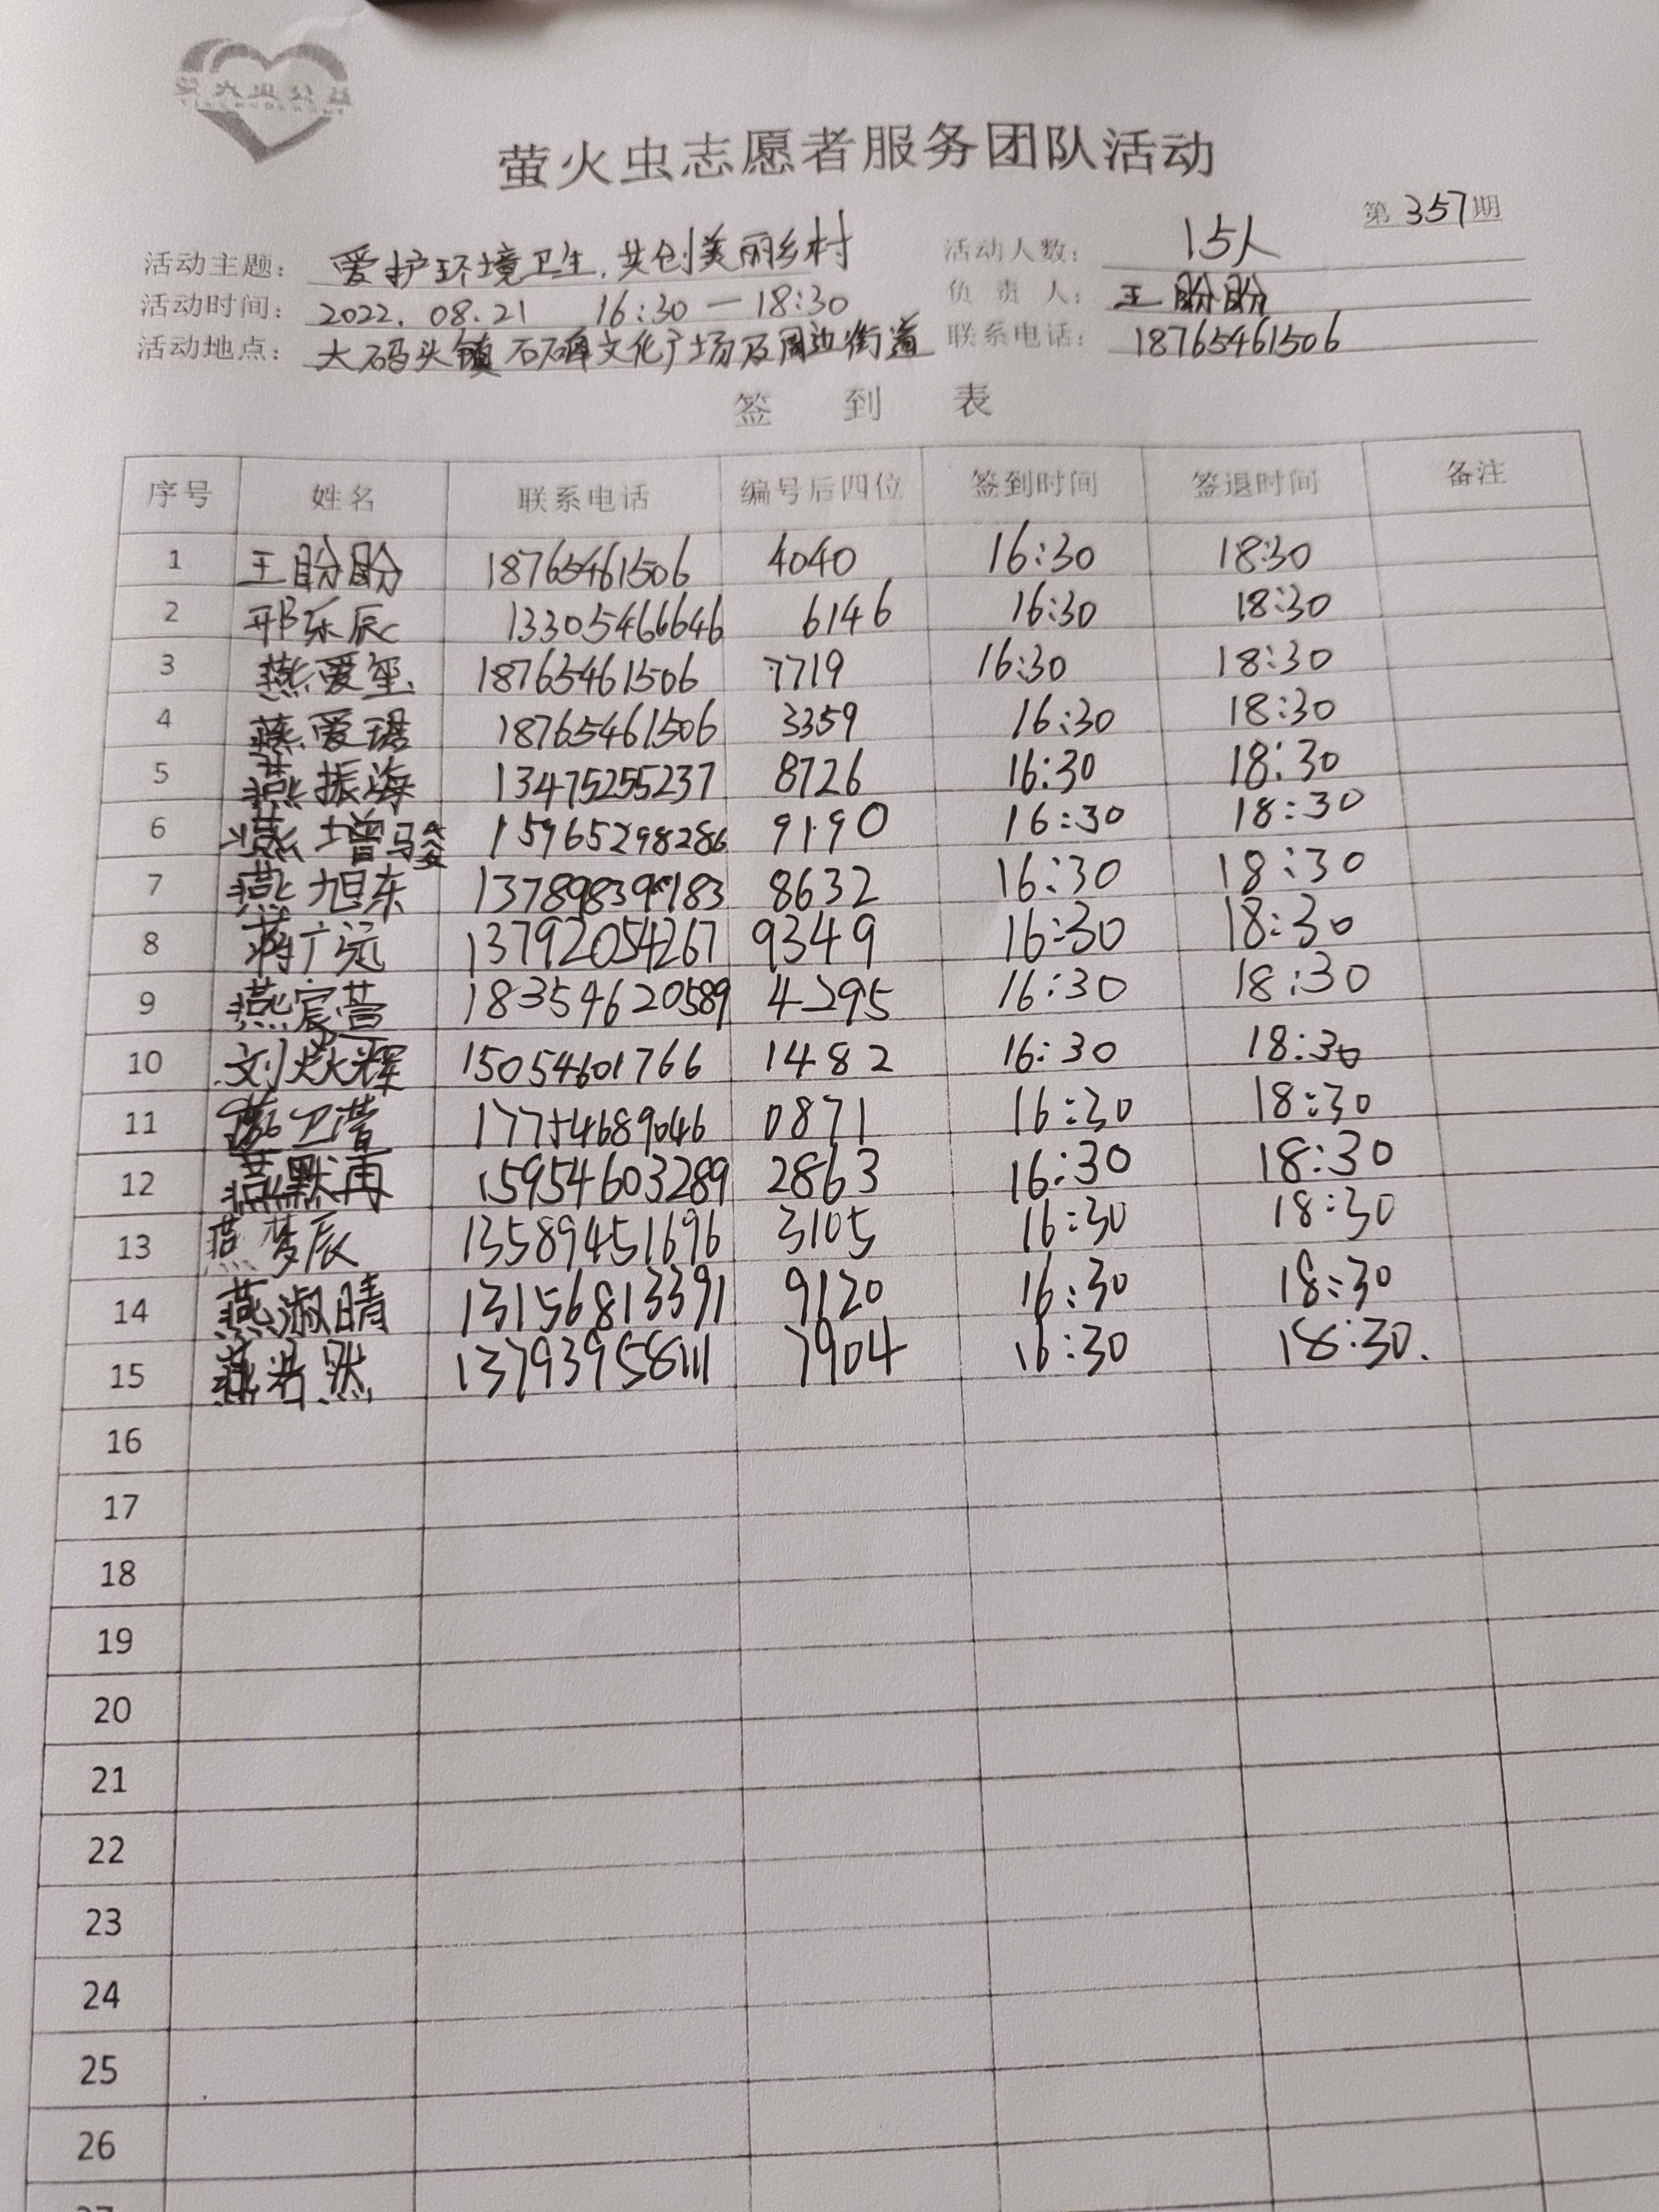 萤火虫公益
萤火虫志愿者服务团队活动
第 357 期
活动主题： 爱护环境卫生，共创美丽乡村 活动人数： 15人
活动时间： 2022. 08. 21 16:30 — 18:30 负责人： 王盼盼
活动地点： 大码头镇石碑文化广场及周边街道 联系电话： 18765461506
签到表
序号 姓名 联系电话 编号后四位 签到时间 签退时间 备注
1 王盼盼 18765461506 4040 16:30 18:30
2 邢乐辰 13305466646 6146 16:30 18:30
3 燕爱玺 18765461506 7719 16:30 18:30
4 燕爱珺 18765461506 3359 16:30 18:30
5 燕振海 13475255237 8726 16:30 18:30
6 燕增骏 15965298286 9190 16:30 18:30
7 燕旭东 8632 16:30 18:30
8 蒋广远 13792054267 9349 16:30 18:30
9 燕宸萱 18354620589 4295 16:30 18:30
10 刘焱辉 15054601766 1482 16:30 18:30
11 17754689046 0871 16:30 18:30
12 燕默冉 15954603289 2863 16:30 18:30
13 燕梦辰 13589451696 3105 16:30 18:30
14 燕淑晴 13156813391 9120 16:30 18:30
15 燕浩然 13793958111 7904 16:30 18:30.
16
17
18
19
20
21
22
23
24
25
26